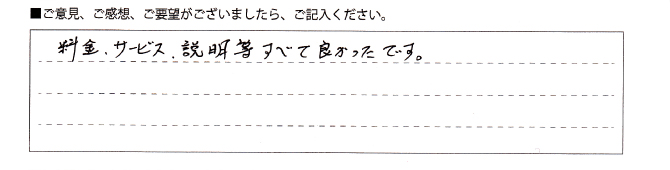 ■ご意見、ご感想、ご要望がございましたら、ご記入ください。
料金、サービス、説明等すべて良かったです。